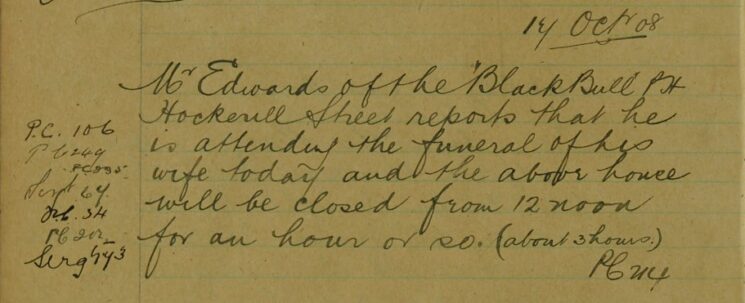 14 Octr 08
Mr Edwards of the "Black Bull" P.H
Hockerill Street reports that he
is attending the funeral of his
wife today and the above house
will be closed from 12 noon
for an hour or so. (about 3 hours.)
P.C. 106
P.C. 249
PC 335
Sergt 64
P.C. 34
PC 202
Serg 143